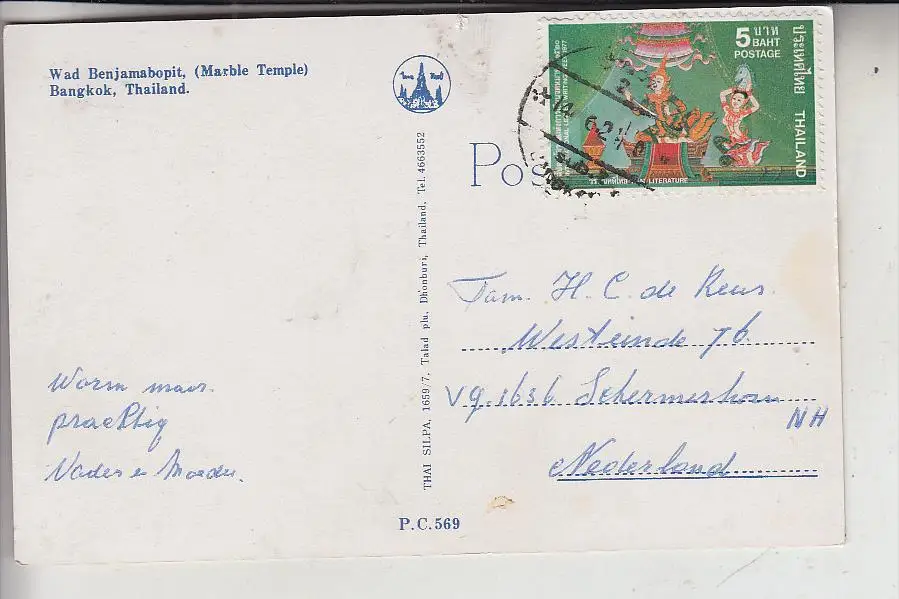 Wad Benjamabopit, (Marble Temple)
Bangkok, Thailand.
5 บาท
BAHT
POSTAGE
ประเทศไทย
THAILAND
LITERATURE
Pos
THAI SILPA, 1659/7, Talad plu, Dhonburi, Thailand, Tel. 4663552
Fam. H. C. de Reus.
Westeinde 76
VQ. 1636 Schermerhorn
NH
Nederland
Warm maar
prachtig
Vader en Moeder.
P.C.569